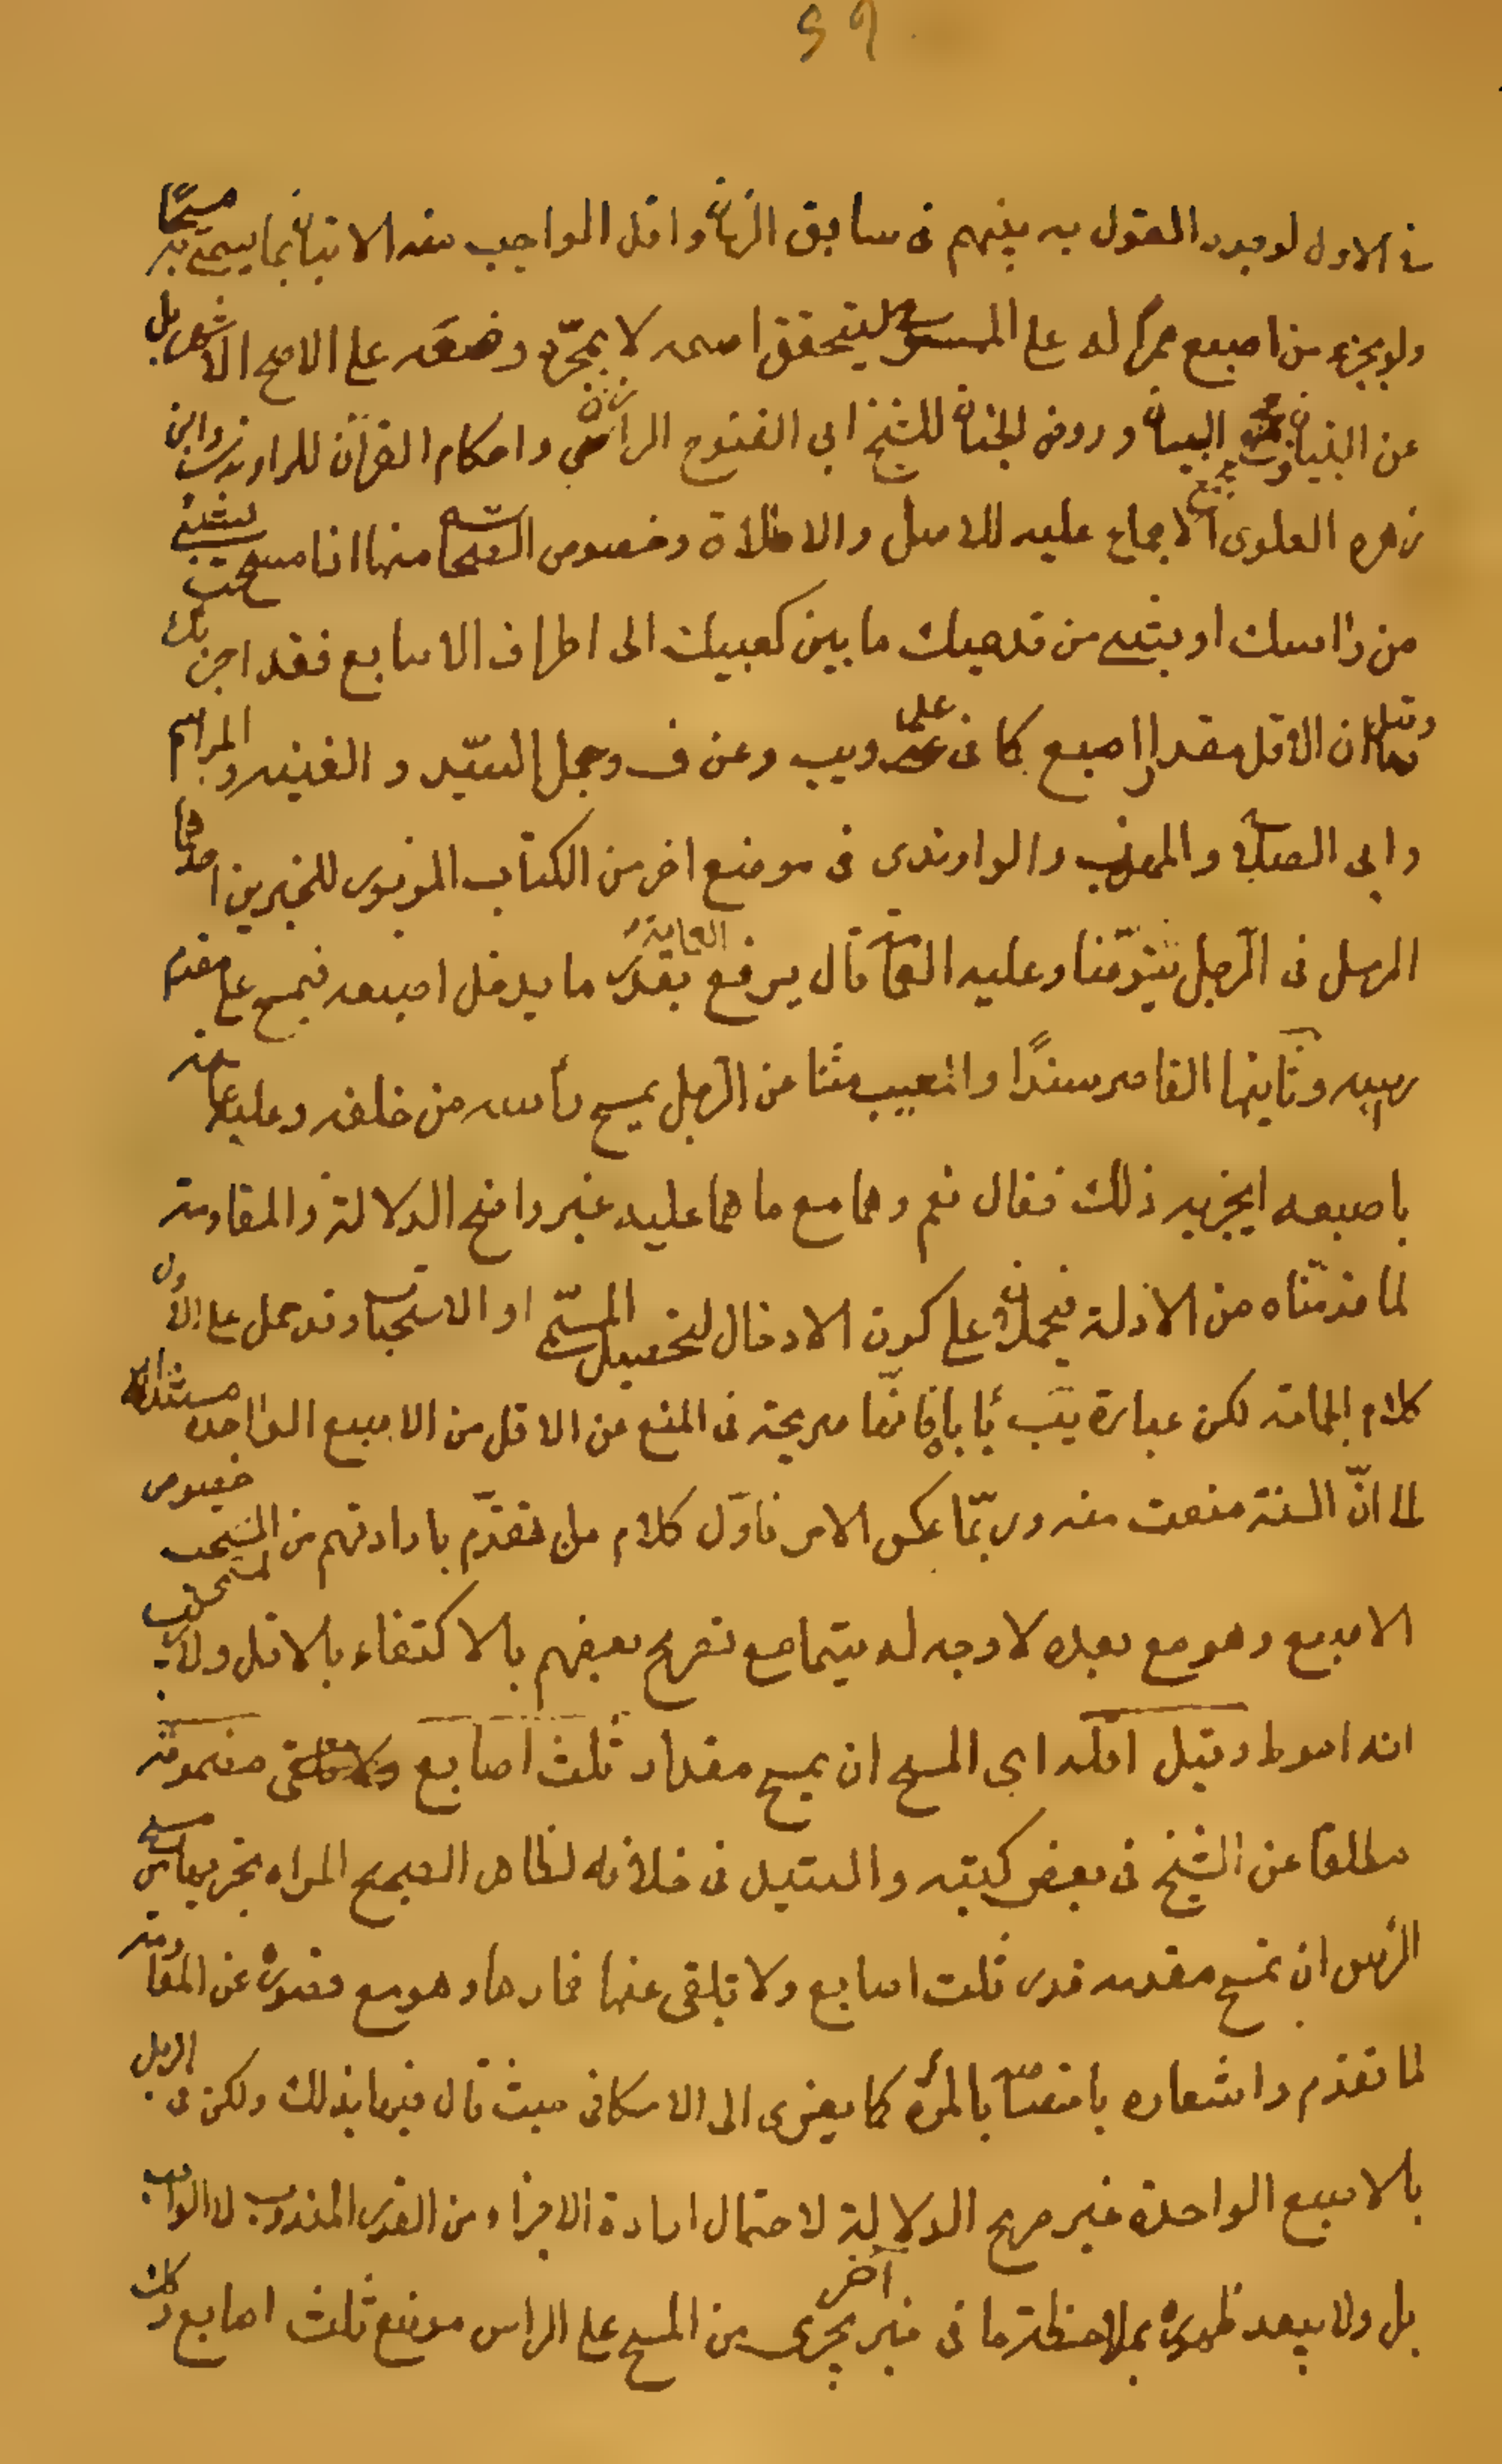 ٥٩
في الاول لوجود القول به بينهم في سابق الزمان واقل الواجب منه الاتيان بما يسمى به مسحًا
ولو بجزء من اصبع ممرا له على الممسوح ليتحقق اسمه لا بمجرّد وضعه على الاصح الاشهر بل
عن التبيان ومجمع البيان وروض الجنان للشيخ ابي الفتوح الرازي واحكام القرآن للراوندي وابن
زهره العلوى الاجماع عليه للاصل والاطلاق وخصوص الصحاح منها اذا مسحت بشيء
من راسك او بشيء من قدميك ما بين كعبيك الى اطراف الاصابع فقد اجزئك
وقيل ان الاقل مقدار اصبع كما في ويب وعن ف وجمل السيّد و الغنيه والمراسم
وابى الصلاح والمهذب والراوندى في موضع اخر من الكتاب المزبور للخبرين احدهما
المرسل في الرّجل يتوضّا وعليه العمامة قال يرفع العمامة بقدر ما يدخل اصبعه فيمسح على مقدم
رسه وثانيها القاصر سندًا والمعيب متنا عن الرّجل يمسح رأسه من خلفه وعليه عمامته
باصبعه ايجزيه ذلك فقال نعم وهما مع ما هما عليه غير واضح الدلالة والمقاومة
لما قدمناه من الادلة فيحملان على كون الادخال لتحصيل المسمّى او الاستحباب وقد حمل على الاول
كلام الجماعة لكن عبارة يب تأباه فانّها صريحة في المنع عن الاقل من الاصبع الواحده مستندا
الى انّ السنة منعت منه وربّما عكس الامر فاوّل كلام من تقدّم بارادتهم من المستحب خصوص
الاصبع وهو مع بعده لا وجه له سيّما مع تصريح بعضهم بالاكتفاء بالاقل ولا ريب
انه احوط وقيل اقله اى المسح ان يمسح مقدار ثلث اصابع مضمومة
مطلقا عن الشيخ في بعض كتبه والسيد في خلافه لظاهر الصحيح المراه يجزيها من مسح
الرس ان تمسح مقدمه قدر ثلث اصابع ولا تلقى عنها خمارها وهو مع قصوره عن المقاومة
لما تقدم واشعاره باختصاصه بالمرأة كما يعزى الى الاسكافى حيث قال فيها بذلك ولكن في الرجل
بالاصبع الواحدة غير صريح الدلالة لاحتمال ارادة الاجزاء من القدر المندوب لا الواجب
بل ولا يبعد ظهوره بملاحظة ما في خبر آخر يجزى من المسح على الراس موضع ثلث اصابع وكذا